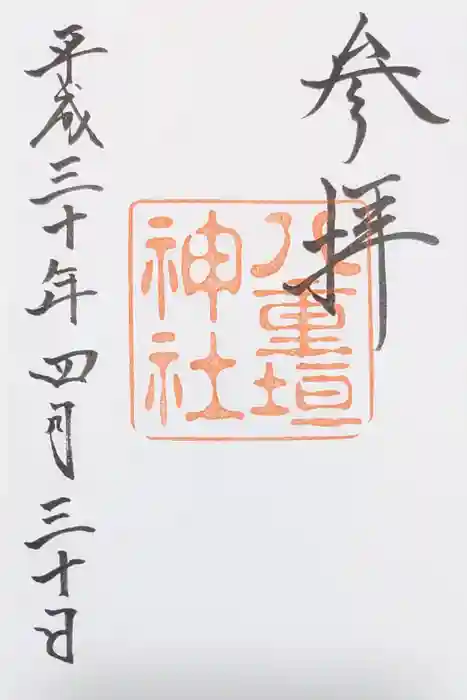 参拝
八重垣
神社
平成三十年四月三十日